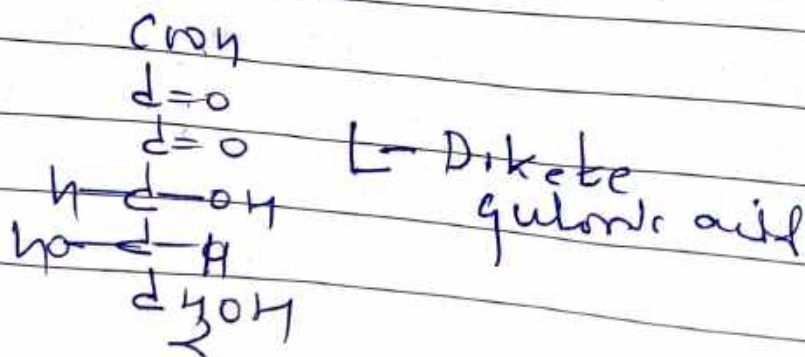 COOH
C=O
C=O
H-C-OH
HO-C-H
CH2OH
L-Dikete
gulonic acid